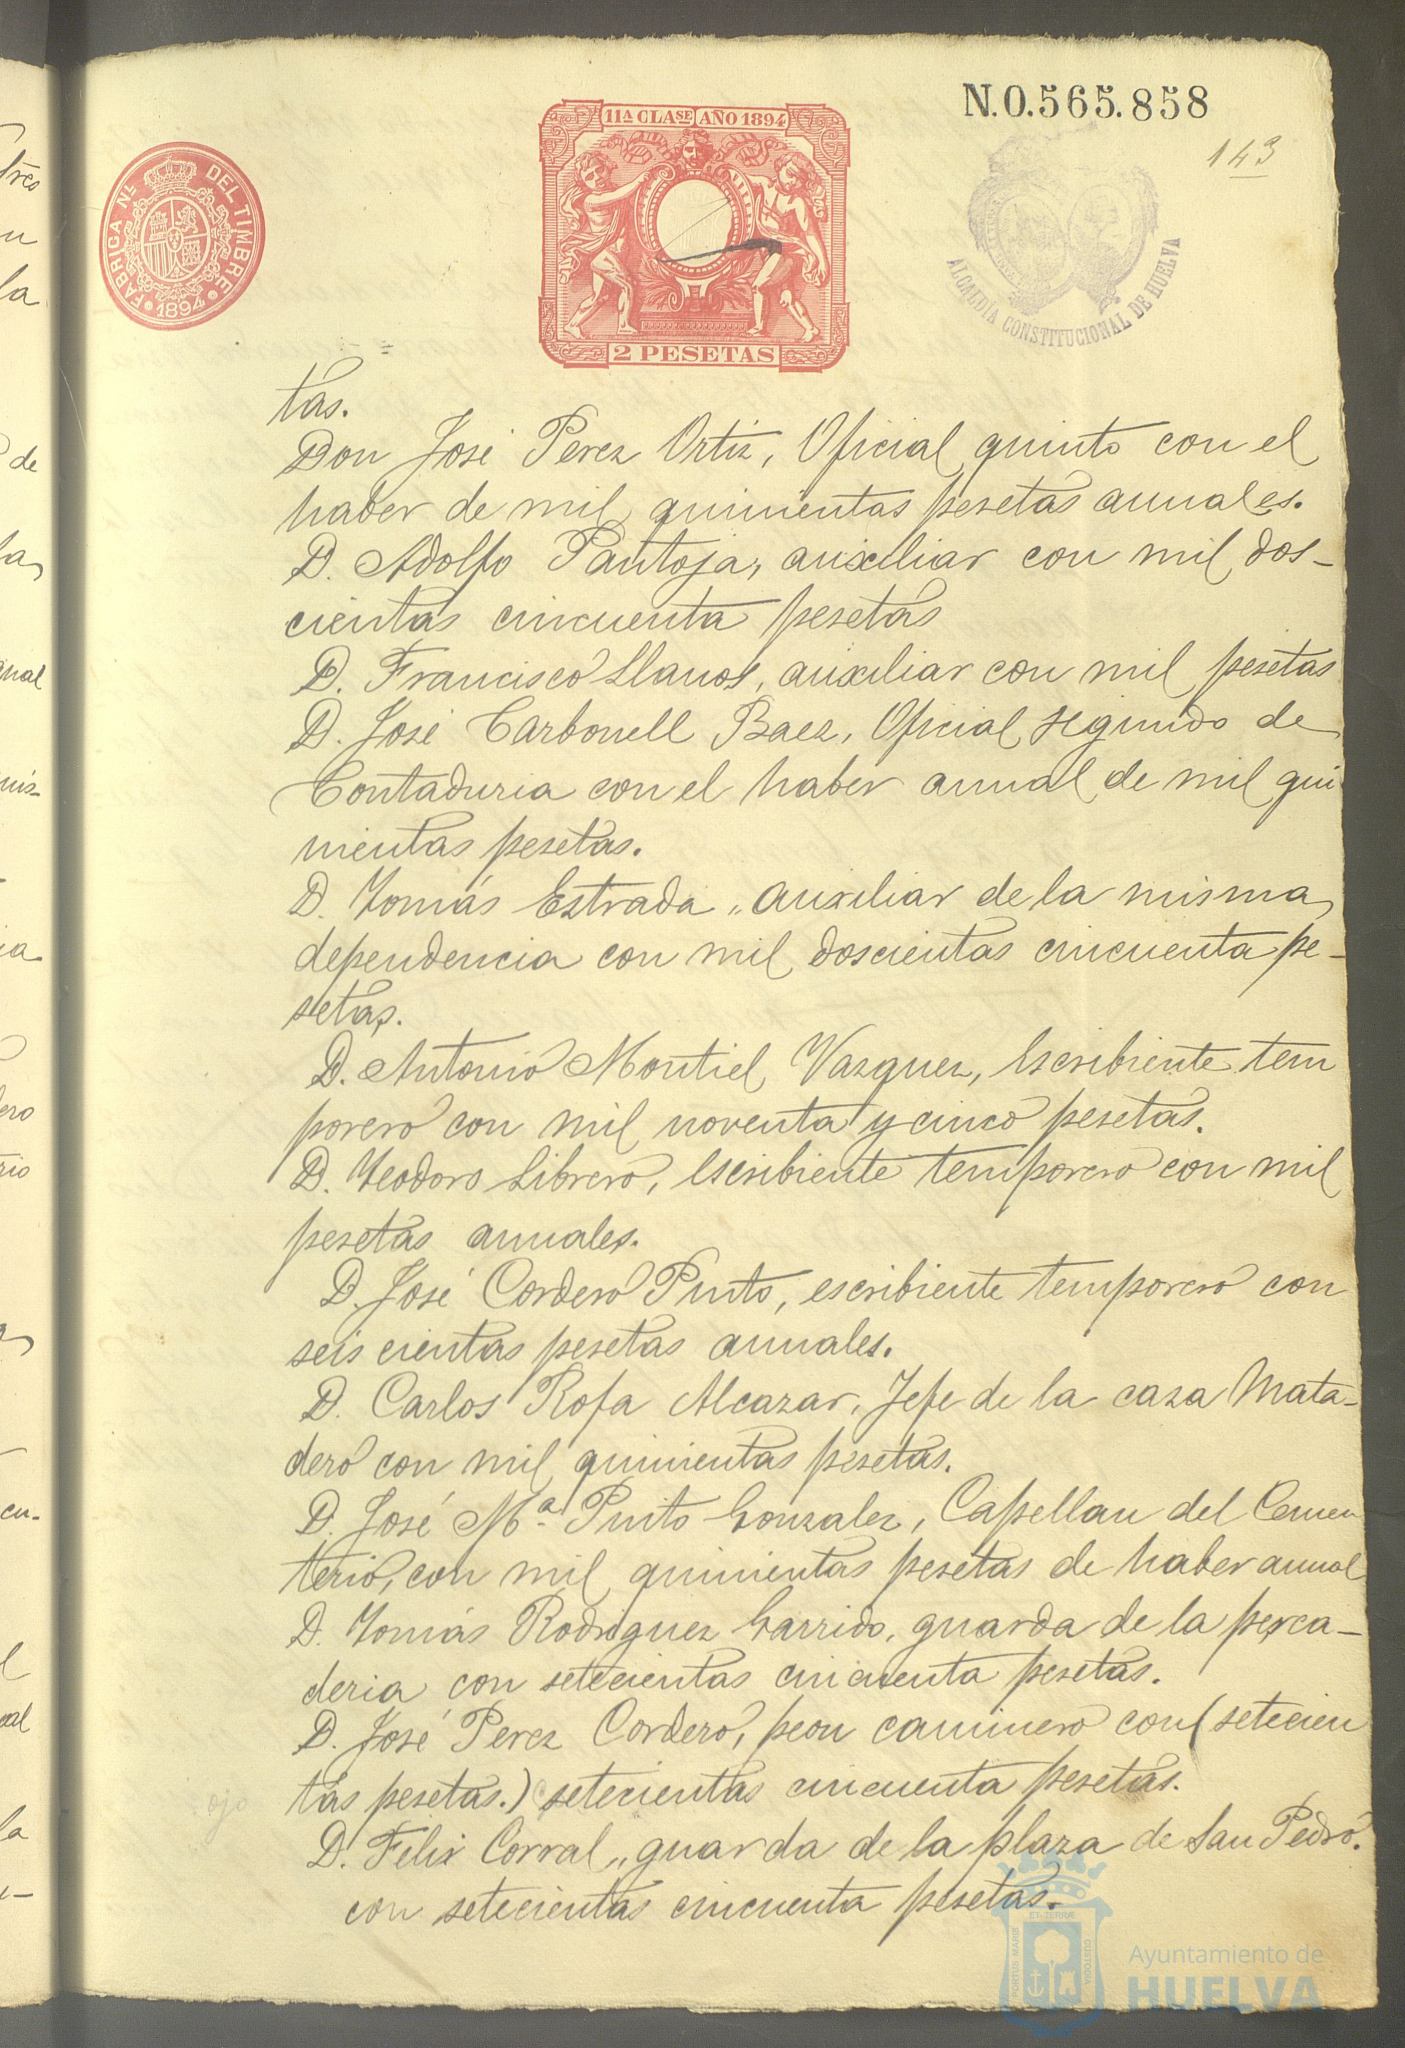 N.0.565.858
143
11A CLASE AÑO 1894
FABRICA NL DEL TIMBRE
1894
2 PESETAS
ALCALDÍA CONSTITUCIONAL DE HUELVA
tas.
Don José Perez Ortiz, Oficial quinto con el
haber de mil quinientas pesetas anuales.
D. Adolfo Pantoja, auxiliar con mil dos-
cientas cincuenta pesetas
D. Francisco Llanos, auxiliar con mil pesetas
D. José Carbonell Baez, Oficial segundo de
Contaduria con el haber anual de mil qui
nientas pesetas.
D. Tomás Estrada, auxiliar de la misma
dependencia con mil doscientas cincuenta pe-
setas.
D. Antonio Montiel Vazquez, Escribiente tem
porero con mil noventa y cinco pesetas.
D. Teodoro Librero, Escribiente temporero con mil
pesetas anuales.
D. José Cordero Pinto, escribiente temporero con
seis cientas pesetas anuales.
D. Carlos Rofa Alcazar, Jefe de la casa Mata-
dero con mil quinientas pesetas.
D. José Mª Pinto Gonzalez, Capellan del Cemen
terio, con mil quinientas pesetas de haber anual
D. Tomás Rodriguez Garrido, guarda de la pesca-
deria con setecientas cincuenta pesetas.
D. José Perez Cordero, peon caminero con (setecien
ojo tas pesetas.) setecientas cincuenta pesetas.
D. Felix Corral, guarda de la plaza de San Pedro.
con setecientas cincuenta pesetas.
PORTUS MARIS ET TERRÆ CUSTODIA
Ayuntamiento de
HUELVA